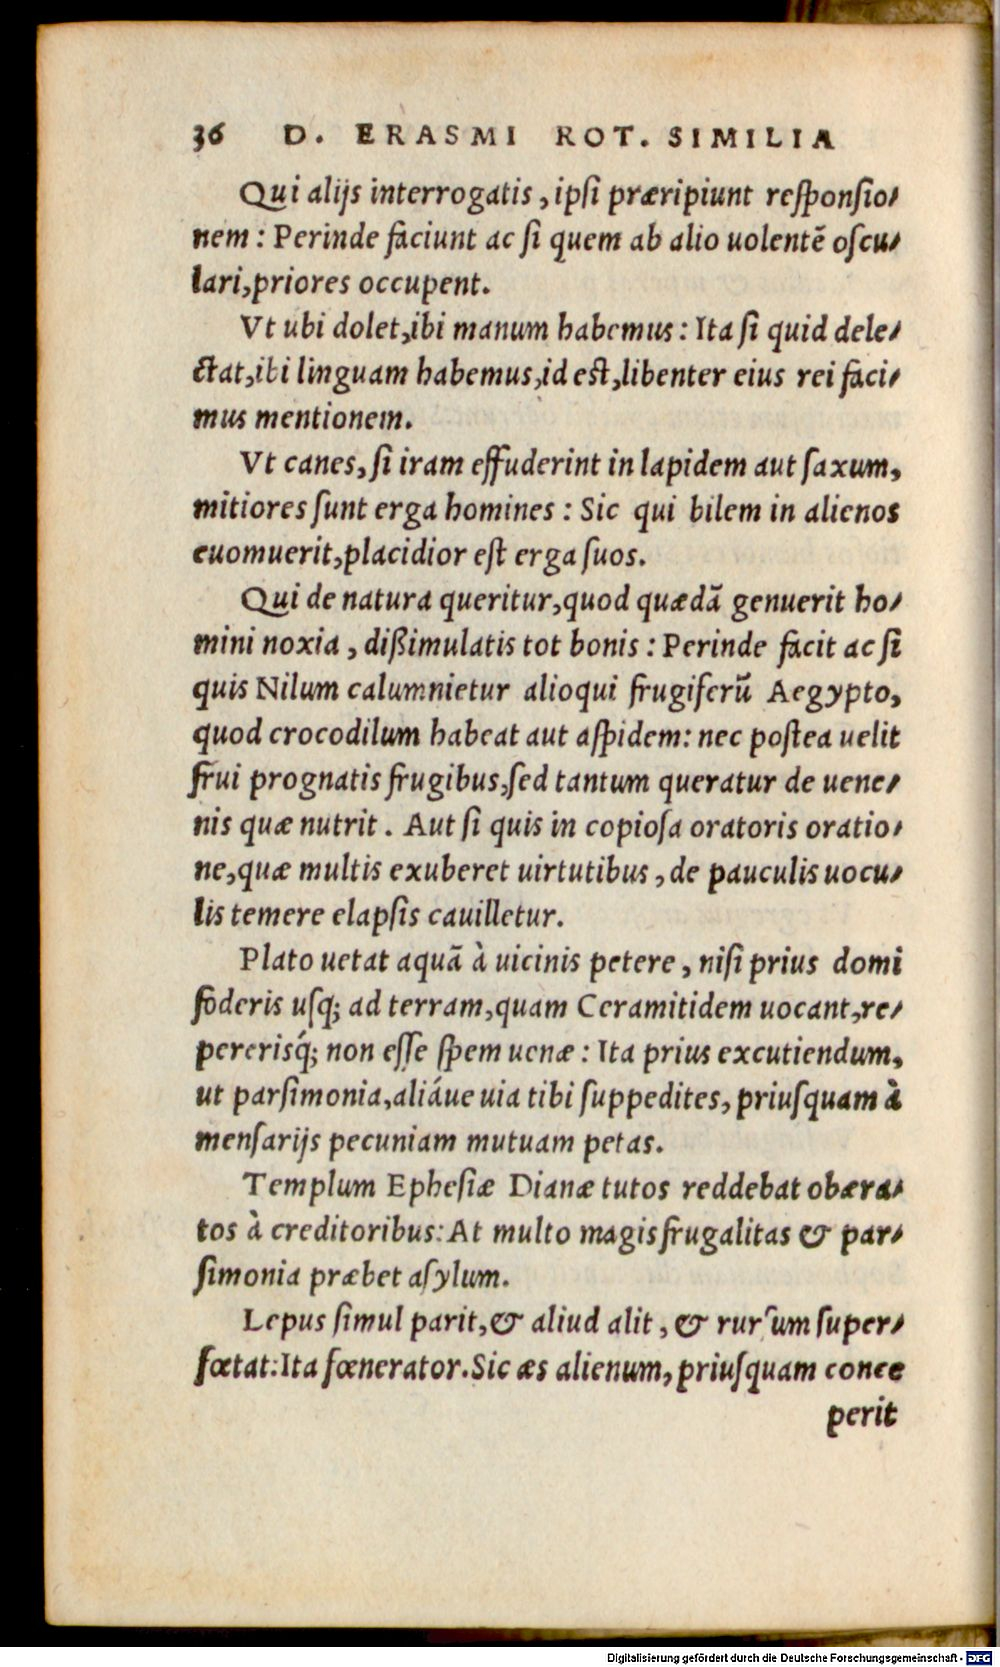 36 D. ERASMI ROT. SIMILIA
Qui alijs interrogatis, ipsi præripiunt responsio-
nem: Perinde faciunt ac si quem ab alio uolentē oscu-
lari, priores occupent.
Vt ubi dolet, ibi manum habemus: Ita si quid dele-
ctat, ibi linguam habemus, id est, libenter eius rei faci-
mus mentionem.
Vt canes, si iram effuderint in lapidem aut saxum,
mitiores sunt erga homines: Sic qui bilem in alienos
euomuerit, placidior est erga suos.
Qui de natura queritur, quod quædā genuerit ho-
mini noxia, dißimulatis tot bonis: Perinde facit ac si
quis Nilum calumnietur alioqui frugiferū Aegypto,
quod crocodilum habeat aut aspidem: nec postea uelit
frui prognatis frugibus, sed tantum queratur de uene-
nis quæ nutrit. Aut si quis in copiosa oratoris oratio-
ne, quæ multis exuberet uirtutibus, de pauculis uocu-
lis temere elapsis cauilletur.
Plato uetat aquā à uicinis petere, nisi prius domi
foderis usq; ad terram, quam Ceramitidem uocant, re-
pererisq́; non esse spem uenæ: Ita prius excutiendum,
ut parsimonia, aliáue uia tibi suppedites, priusquam à
mensarijs pecuniam mutuam petas.
Templum Ephesiæ Dianæ tutos reddebat obæra-
tos à creditoribus: At multo magis frugalitas & par-
simonia præbet asylum.
Lepus simul parit, & aliud alit, & rursum super-
fœtat: Ita fœnerator. Sic æs alienum, priusquam conce
perit
Digitalisierung gefördert durch die Deutsche Forschungsgemeinschaft - DFG